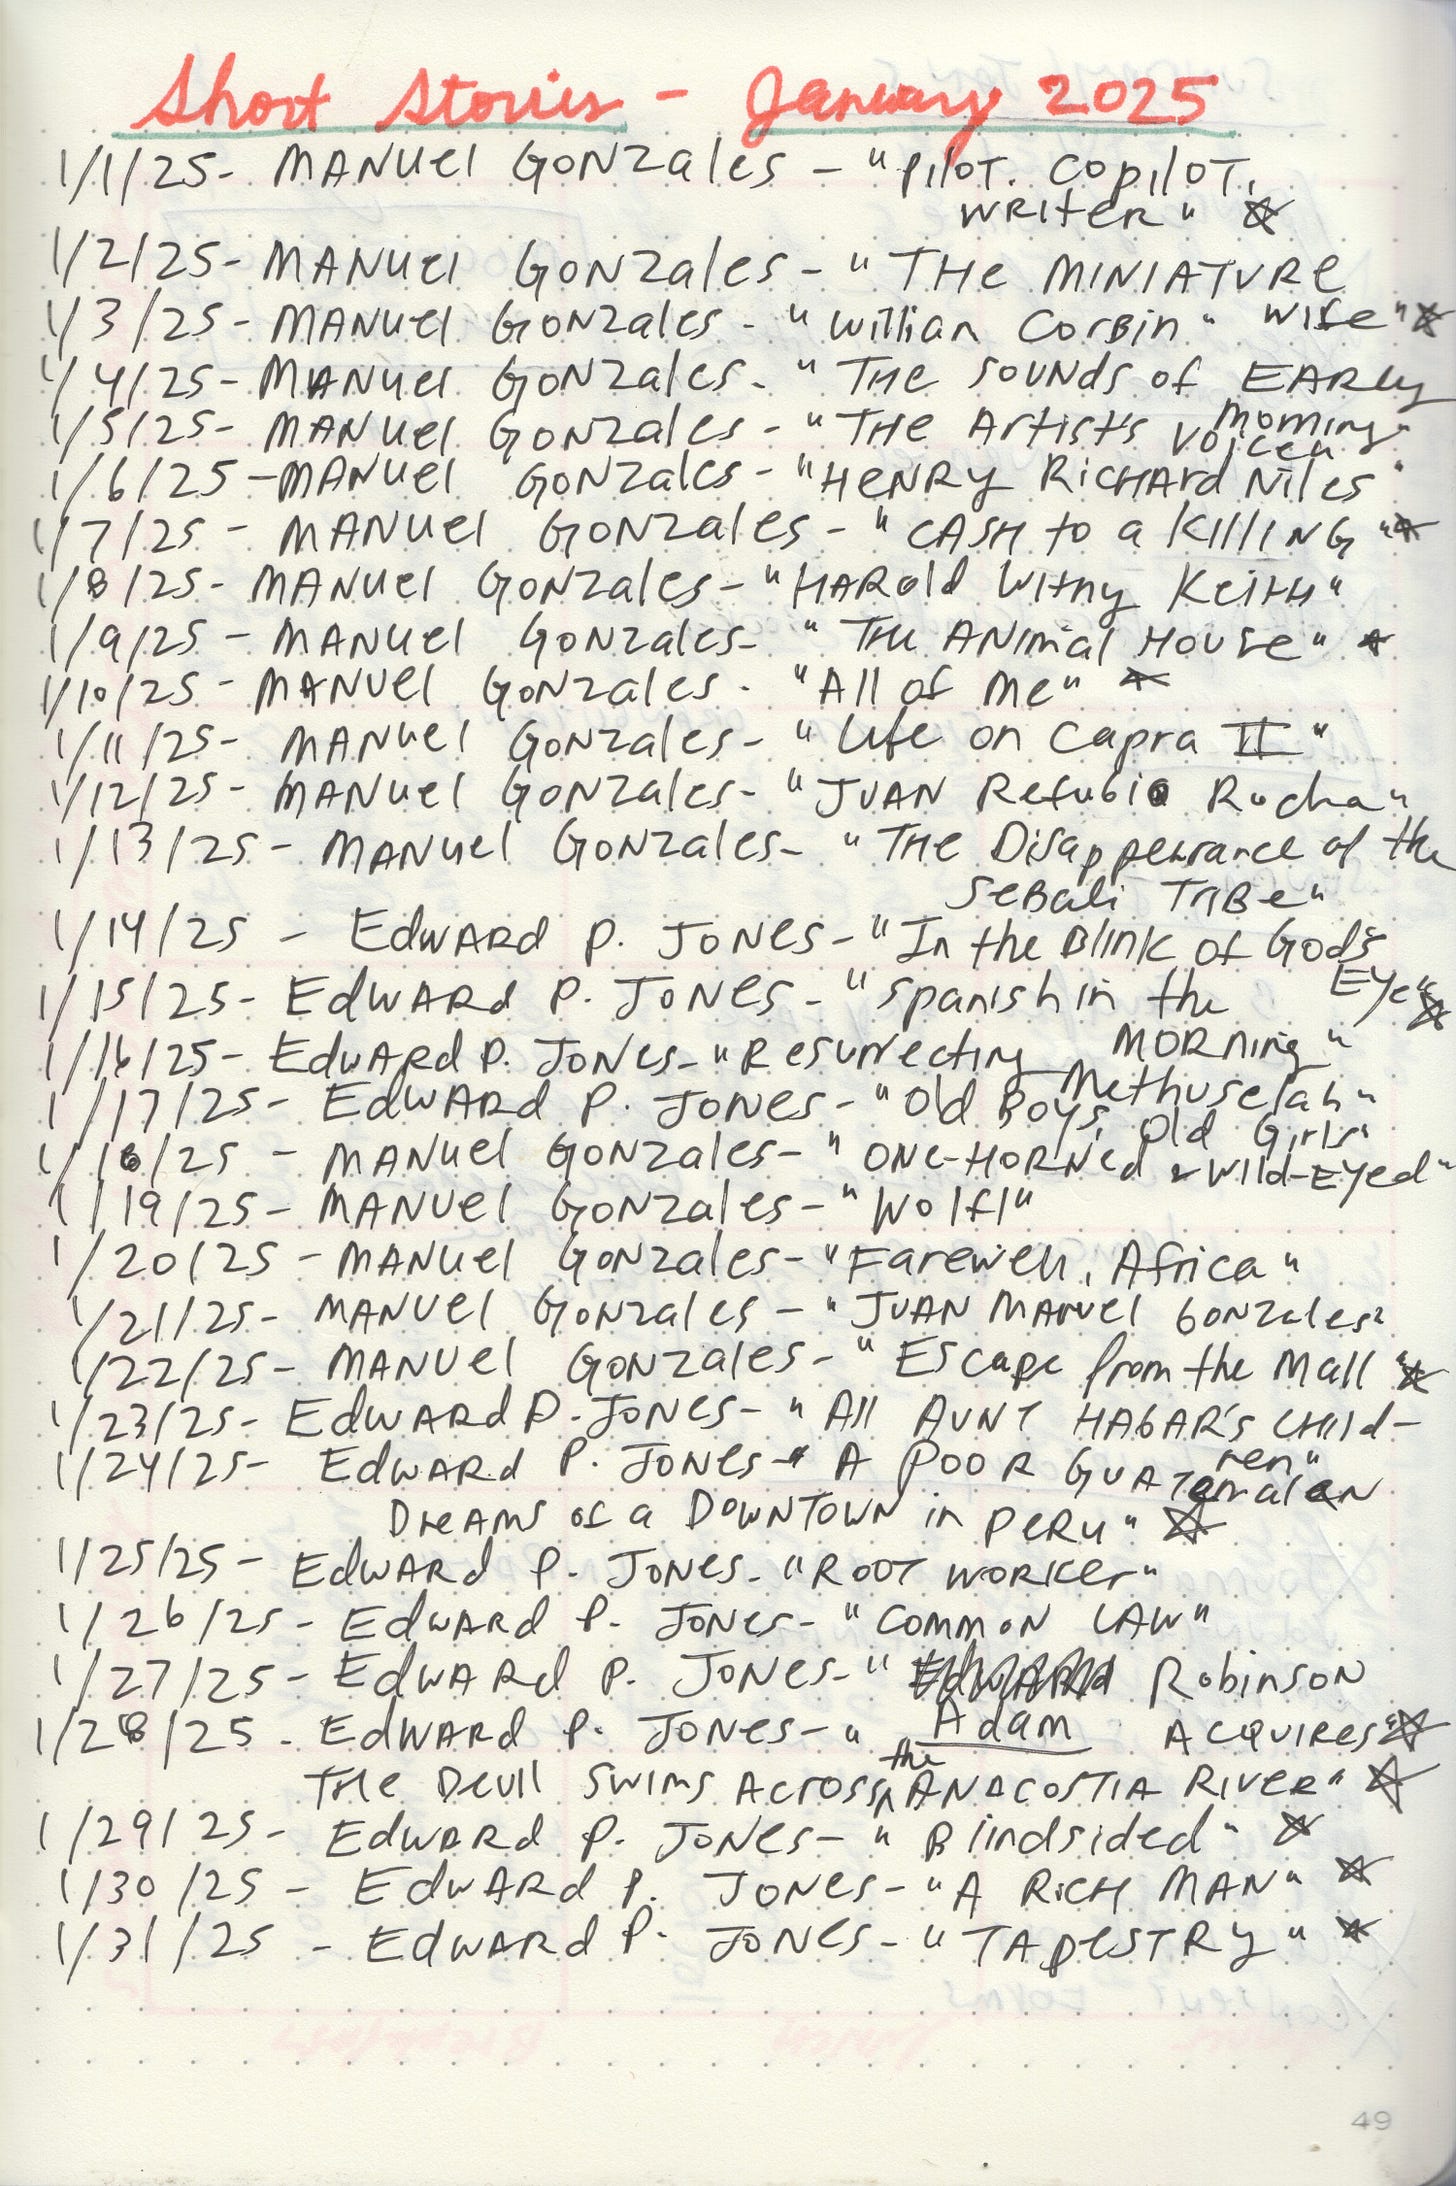 Short Stories - January 2025
1/1/25- MANUel GONZales - "PilOT. COpilOT,
WRIteR" ☆
1/2/25- MANUel GONZales - "THe MINIATURE
1/3/25- MANUel GONZales - "Willian CorBin" Wife" ☆
1/4/25- MANUel GONZales - "THe SOUNds of EARly
1/5/25- MANUel GONZales - "THe Artist's Voice" Morning"
1/6/25 - MANUel GONZales - "HENRY RiCHARd Niles"
1/7/25 - MANUel GONZales - "CASH to a KIllING" ☆
1/8/25- MANUel GONZales - "HARold WitHy KeitH"
1/9/25 - MANUel GONZales- "THe ANimal House" ☆
1/10/25 - MANUel GONZales - "All of Me" ☆
1/11/25- MANUel GONZales- "Life on Capra II"
1/12/25- MANUel GONZales- "JUAN Refugio Rocha"
1/13/25- MANUel GONZales- "THe Disappearance of the
SeBali TriBe"
1/14/25 - EdWARD P. JONES - "In the Blink of God's
1/15/25- EdWARd P. JONES - "Spanish in the Eye" ☆
1/16/25- EdWARd P. JONES- "Resurrecting MORning"
1/17/25- EdWARD P. JONES - "Old Boys, Old Girls" Methuselah"
1/18/25 - MANUel GONZales - "ONE-HORNed & Wild-Eyed"
1/19/25- MANUel GONZales- "Wolf!"
1/20/25 - MANUel GONZales- "Farewell, Africa"
1/21/25- MANUel GONZales - "JUAN MANUel GONZales"
1/22/25- MANUel GONZales- "Escape from the Mall" ☆
1/23/25- EdWARD P. JONES- "All AUNT HAGAR'S CHild-
1/24/25- EdWARd P. JONES- "A POOR GUATemalaN ren"
DreAMS of a DOWNTOWN in PERU" ☆
1/25/25- EdWARd P. JONES- "ROOT WORKer"
1/26/25- EdWARd P. JONES- "COMMON LAW"
1/27/25- EdWARd P. JONES- " Robinson
1/28/25 - EdWARd P. JONES- " Adam ACQUIRes" ☆
THe Devil SWims ACROSS the ANACOSTIA RIVER" ☆
1/29/25- EdWARd P. JONES- "Blindsided" ☆
1/30/25 - EdWARd P. JONES- "A RiCH MAN" ☆
1/31/25 - EdWARd P. JONES- "TApeSTRY" ☆
49